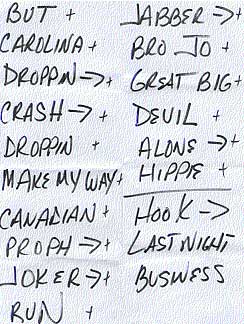 BUT +
CAROLINA +
DROPPIN → +
CRASH → +
DROPPIN +
MAKE MY WAY +
CANADIAN +
PROPH → +
JOKER → +
RUN +
JABBER → +
BRO JO +
GREAT BIG +
DEVIL +
ALONE → +
HIPPIE +
HOOK →
LAST NIGHT
BUSWESS